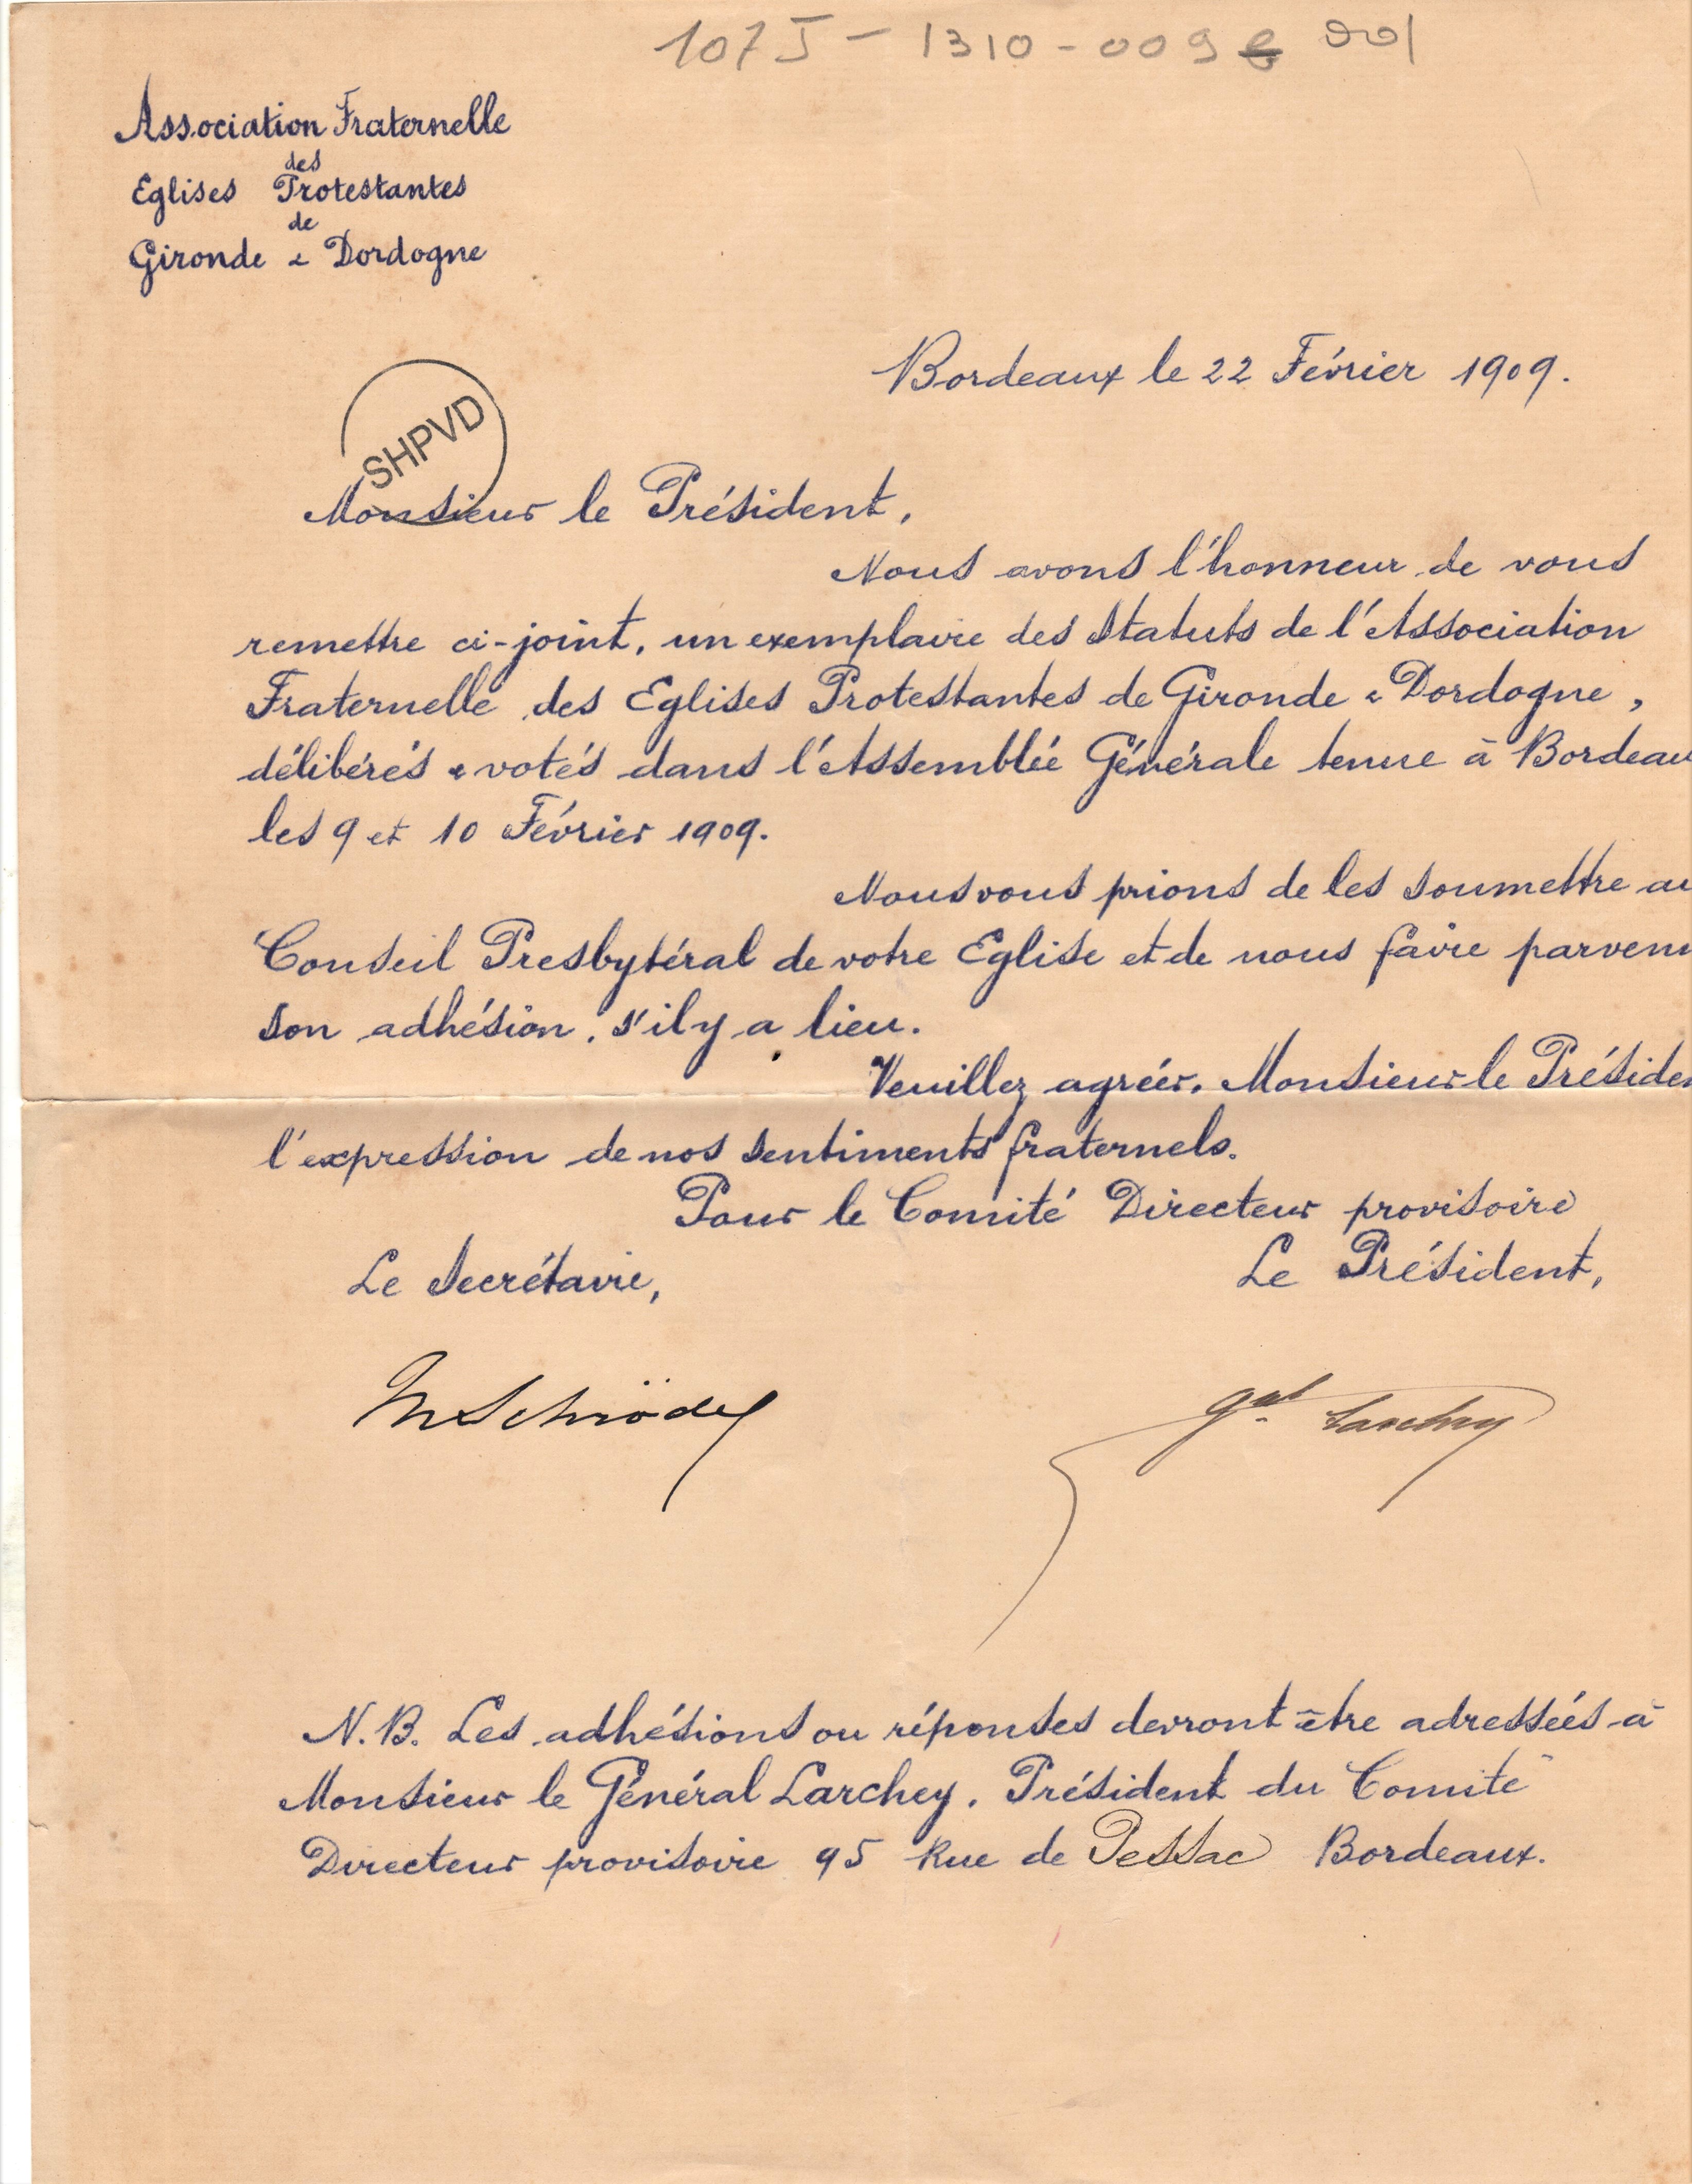 107 J - 1310 - 009 001
Association Fraternelle
des
Eglises Protestantes
de
Gironde & Dordogne
Bordeaux le 22 Février 1909.
SHPVD
Monsieur le Président,
Nous avons l'honneur de vous
remettre ci-joint, un exemplaire des Statuts de l'Association
Fraternelle des Eglises Protestantes de Gironde & Dordogne,
délibérés & votés dans l'Assemblée Générale tenue à Bordeau
les 9 et 10 Février 1909.
Nous vous prions de les soumettre au
Conseil Presbytéral de votre Eglise et de nous faire parveni
son adhésion, s'il y a lieu.
Veuillez agréer, Monsieur le Présiden
l'expression de nos sentiments fraternels.
Pour le Comité Directeur provisoire
Le Secrétaire,
Le Président,
M Schröder
Gal Larchey
N.B. Les adhésions ou réponses devront être adressées à
Monsieur le Général Larchey, Président du Comité
Directeur provisoire 95 Rue de Pessac Bordeaux.